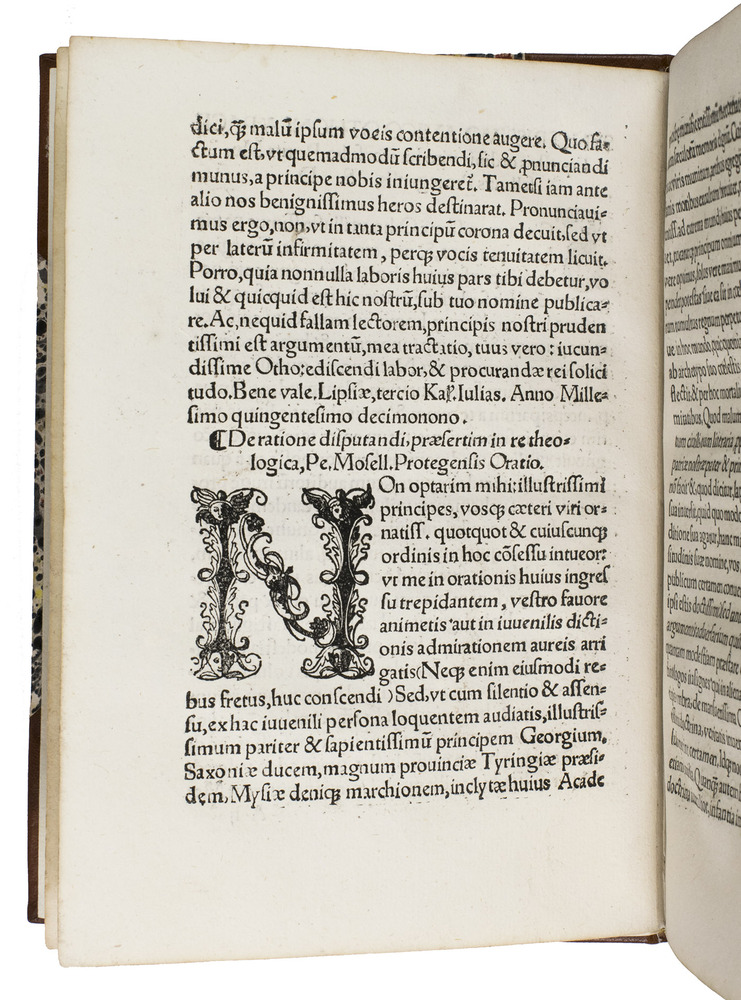 dici, qȝ malū ipsum vocis contentione augere. Quo fa⸗
ctum est, vt quemadmodū scribendi, sic & ꝓnunciandi
munus, a principe nobis iniungeret᷑. Tametsi iam ante
alio nos benignissimus heros destinarat. Pronunciaui⸗
mus ergo, non, vt in tanta principū corona decuit, sed vt
per laterū infirmitatem, perqȝ vocis tenuitatem licuit.
Porro, quia nonnulla laboris huius pars tibi debetur, vo
lui & quicquid est hic nostrū, sub tuo nomine publica⸗
re. Ac, nequid fallam lectorem, principis nostri pruden
tissimi est argumentū, mea tractatio, tuus vero: iucun⸗
dissime Otho: ediscendi labor, & procurandæ rei solici
tudo. Bene vale. Lipsiæ, tercio Kal. Iulias. Anno Mille⸗
simo quingentesimo decimonono.
¶ De ratione disputandi, præsertim in re theo⸗
logica, Pe. Mosell. Protegensis Oratio.
NOn optarim mihi: illustrissimi
principes, vosqȝ cæteri viri or⸗
natiss. quotquot & cuiuscunqȝ
ordinis in hoc cōsessu intueor:
vt me in orationis huius ingres
su trepidantem, vestro fauore
animetis aut in iuuenilis dicti⸗
onis admirationem aureis arri
gatis (Neqȝ enim eiusmodi re⸗
bus fretus, huc conscendi) Sed, vt cum silentio & assen⸗
su, ex hac iuuenili persona loquentem audiatis, illustris⸗
simum pariter & sapientissimū principem Georgium.
Saxoniæ ducem, magnum prouinciæ Tyringiæ præsi⸗
dem, Mysiæ deniqȝ marchionem, inclytæ huius Acade